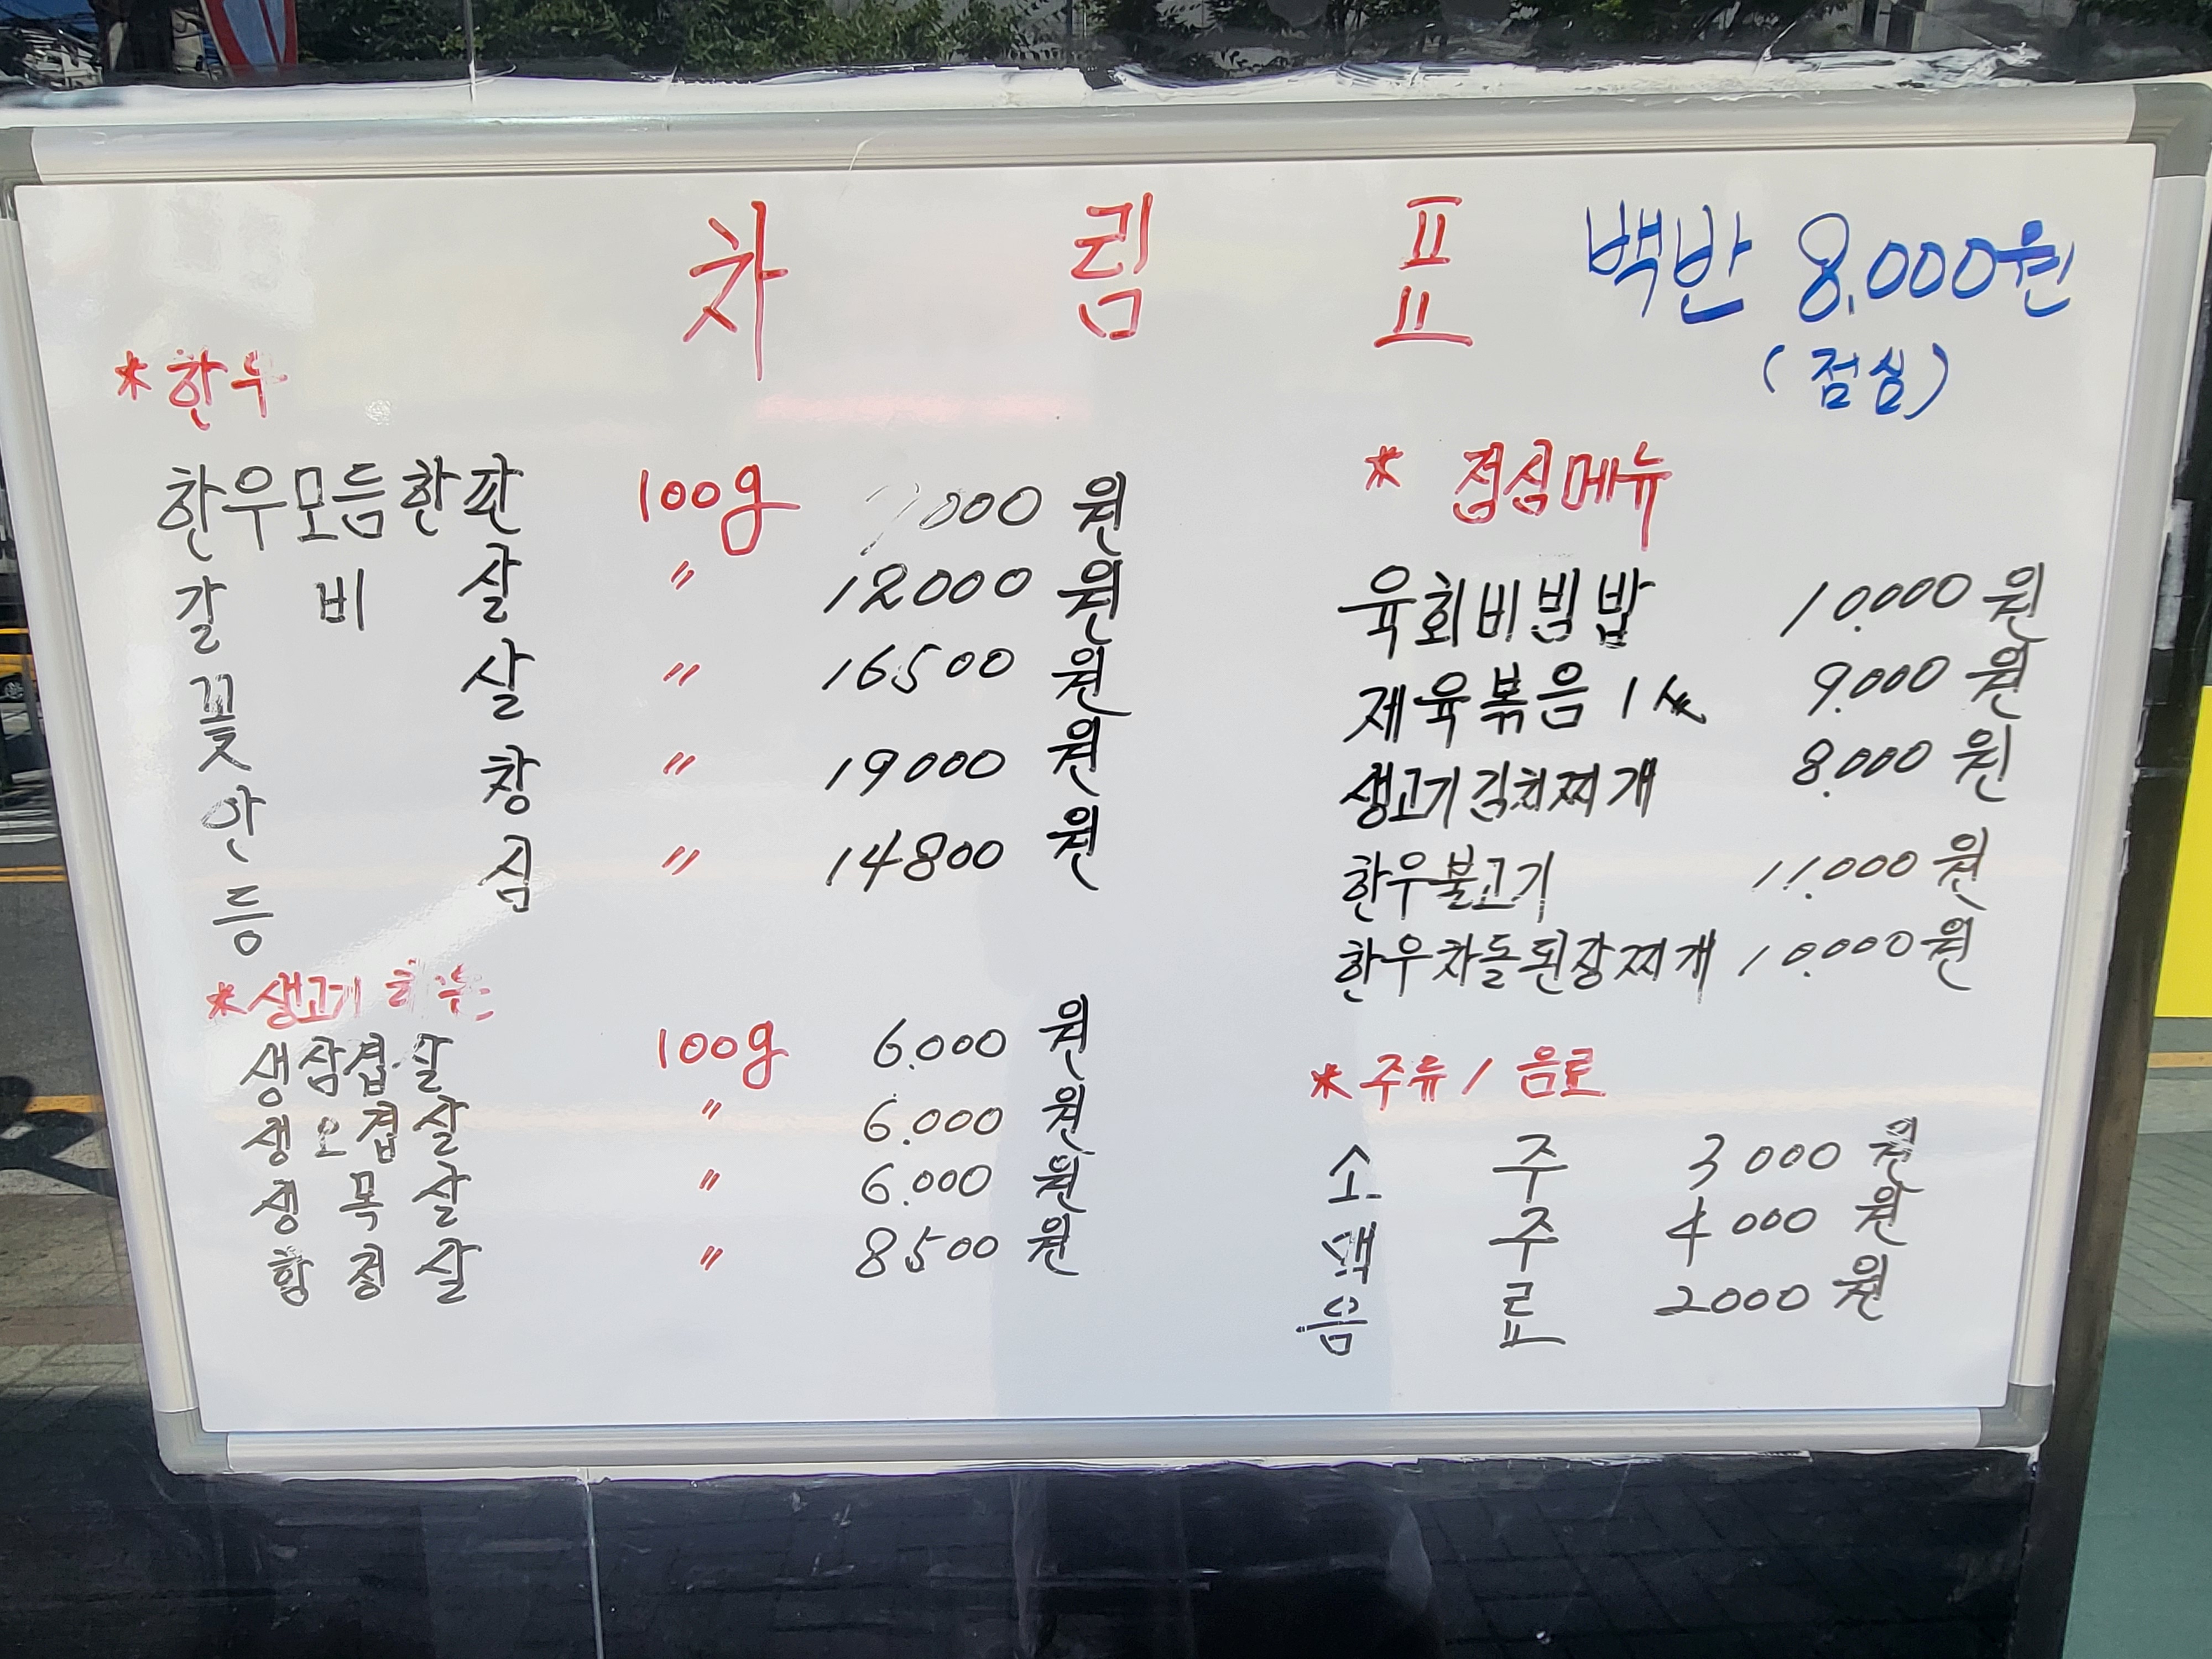 차 림 표
백반 8,000원
(점심)
*한우
한우모듬한판 100g 원
갈 비 살 〃 12000 원
꽃 살 〃 16500 원
안 창 〃 19000 원
등 심 〃 14800 원
*생고기
생삼겹살 100g 6.000 원
생오겹살 〃 6.000 원
생 목 살 〃 6.000 원
항 정 살 〃 8500 원
* 점심메뉴
육회비빔밥 10.000 원
제육볶음 1人 9.000 원
생고기김치찌개 8.000 원
한우불고기 11.000 원
한우차돌된장찌개 10.000원
*주류 / 음료
소 주 3000 원
맥 주 4000 원
음 료 2000 원